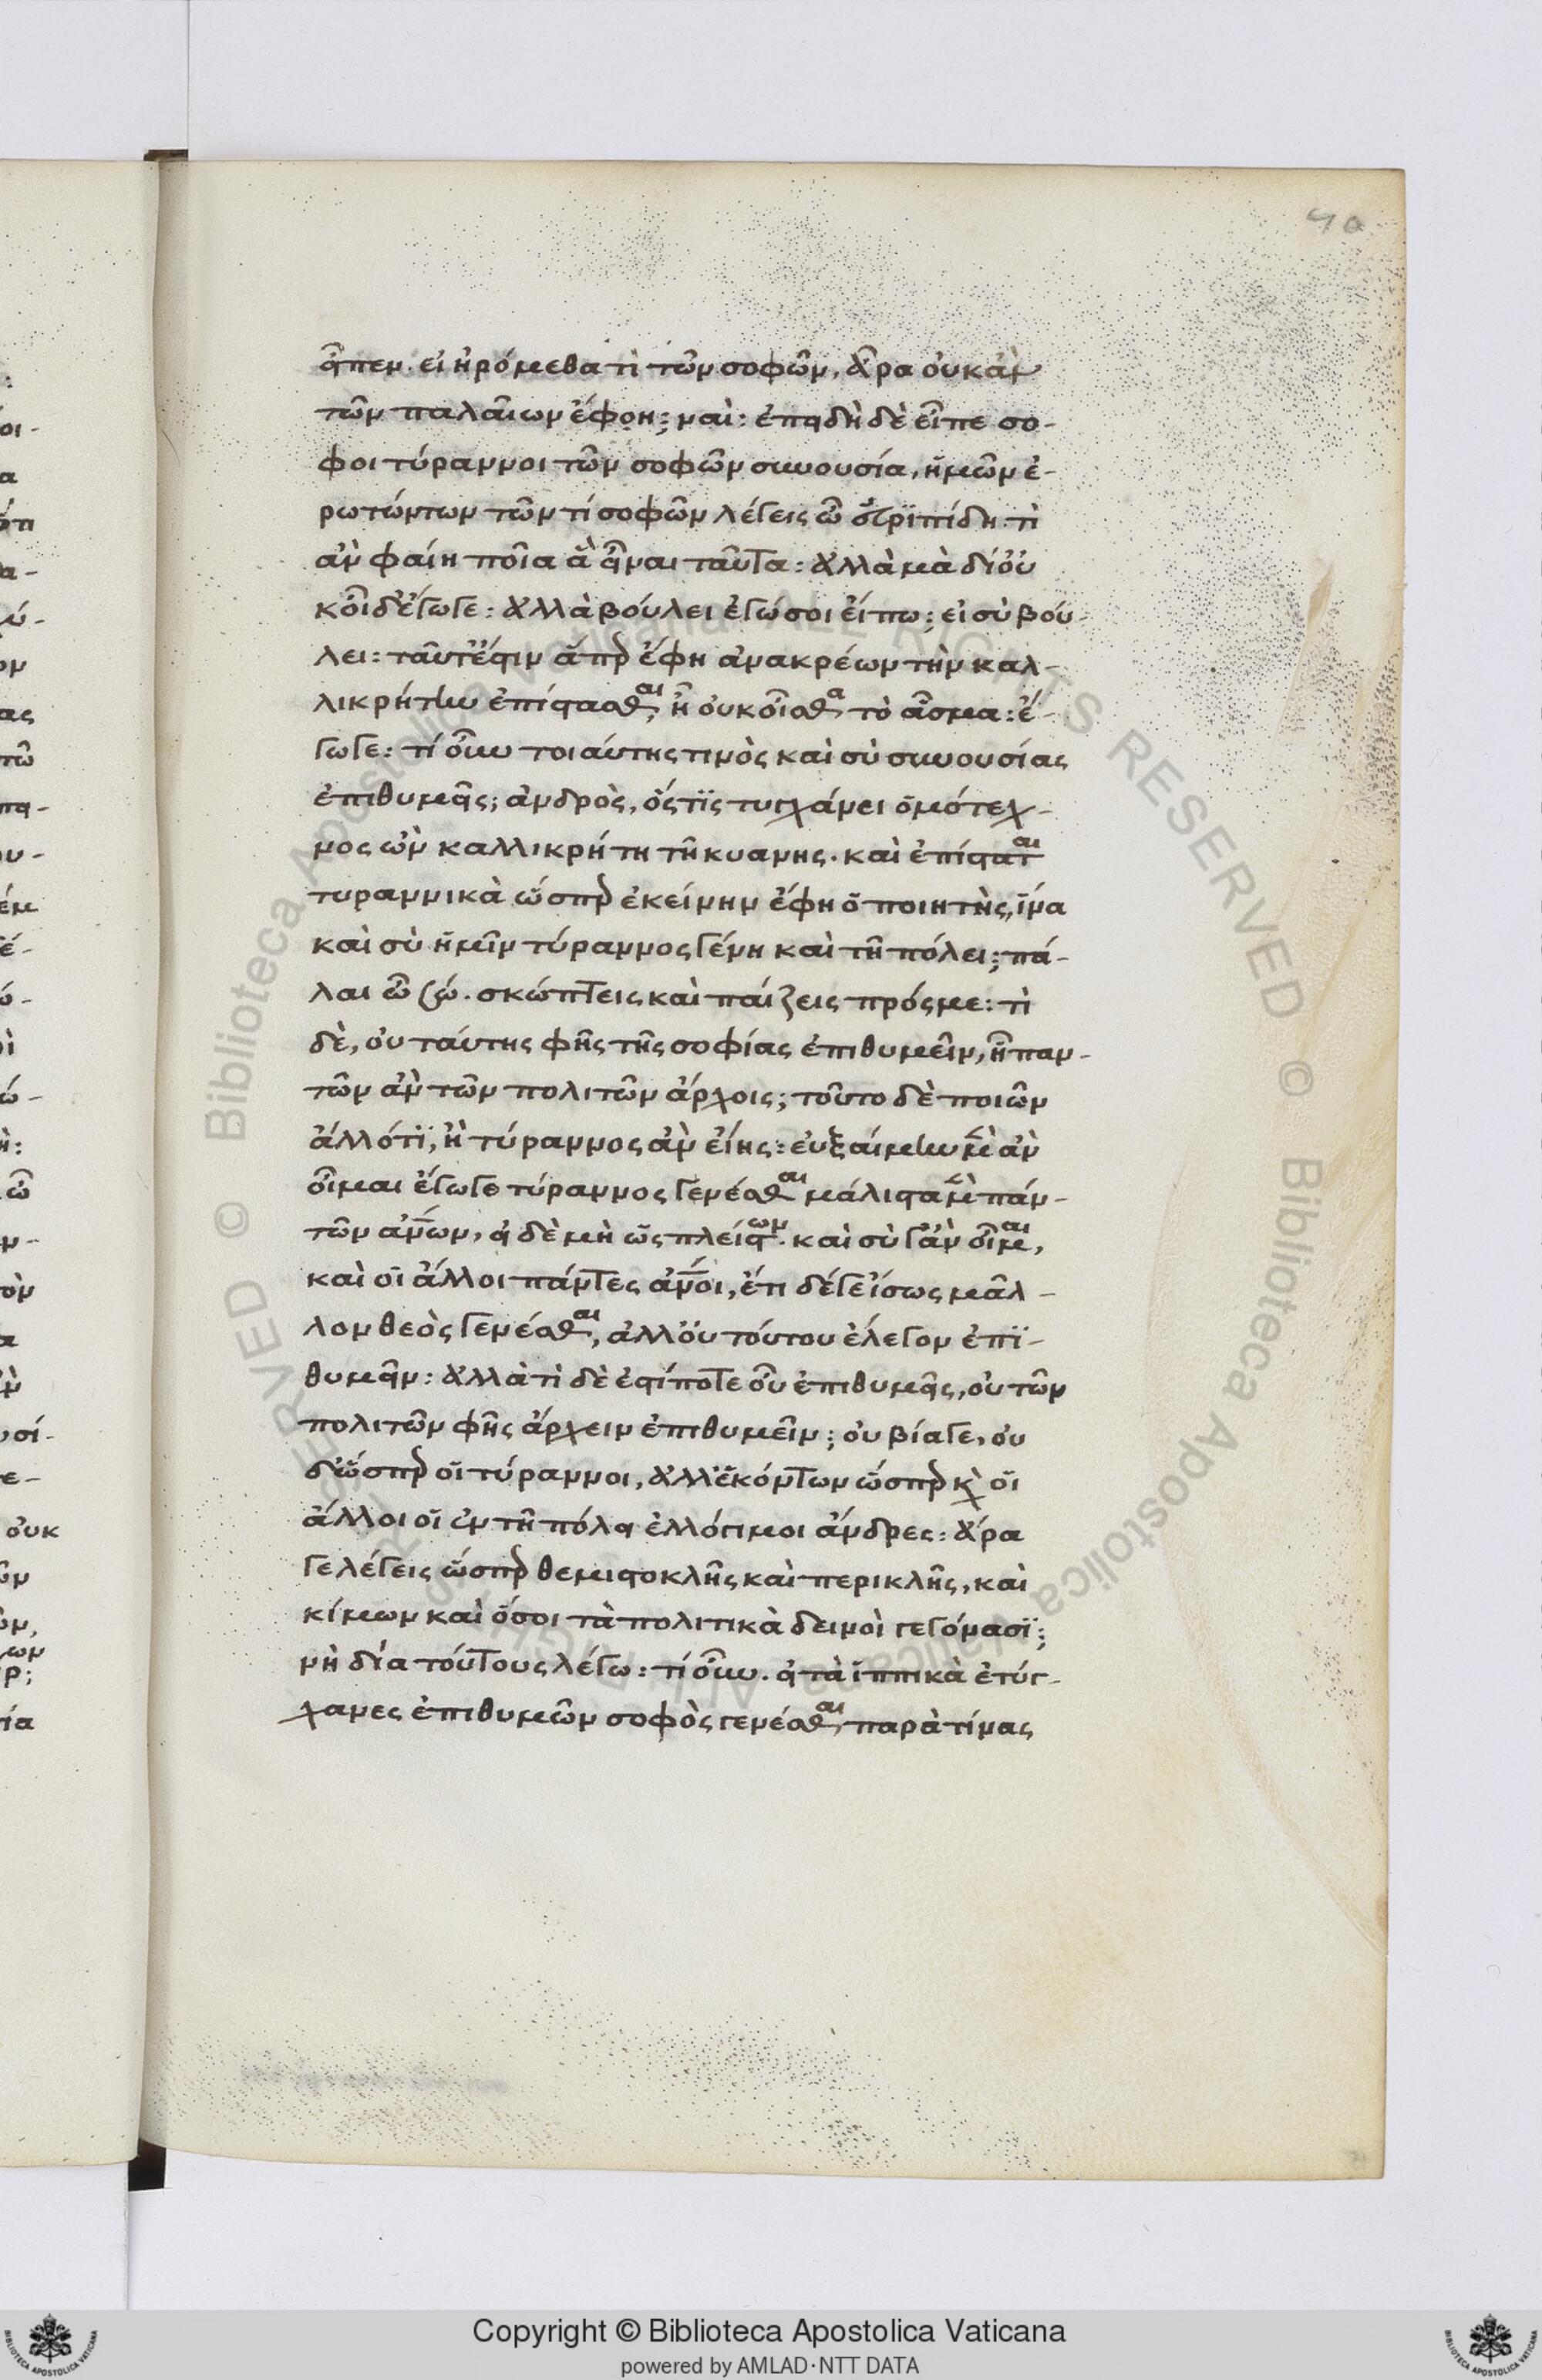 90
εἶπεν. εἰ ἠρόμεθα τὶ τῶν σοφῶν, ἆρα οὐκ ἂν
τῶν παλαίων ἔφοη; ναὶ: ἐπειδὴ δὲ εἶπε σο-
φοι τύραννοι τῶν σοφῶν συνουσία, ἡμῶν ἐ-
ρωτώντων τῶν τί σοφῶν λέγεις ὦ εὐριπίδη. τὶ
ἂν φαίη ποῖα ἂ εἶναι ταῦτα: ἀλλὰ μὰ δί' οὐ
κοἶδ' ἔγωγε: ἀλλὰ βούλει ἐγώ σοι εἴπω; εἰ σὺ βού-
λει: ταῦτ' ἔστιν ἅπερ ἔφη ἀνακρέων τὴν καλ-
λικρήτην ἐπίστασθαι, ἢ οὐκ οἶσθα τὸ ᾆσμα: ἔ-
γωγε: τί οὖν τοιαύτης τινὸς καὶ σὺ συνουσίας
ἐπιθυμεῖς; ἀνδρὸς, ὅς τϊς τυγχάνει ὁμότεχ-
νος ὢν καλλικρήτη τῆ κυανης. καὶ ἐπίσταται
τυραννικὰ ὥσπερ ἐκείνην ἔφη ὁ ποιητὴς, ἵνα
καὶ σὺ ἡμῖν τύραννος γένη καὶ τῆ πόλει; πά-
λαι ὦ σώ. σκώπτεις καὶ παίζεις πρός με: τὶ
δὲ, οὐ ταύτης φῆς τῆς σοφίας ἐπιθυμεῖν, ἧ παν-
τῶν ἂν τῶν πολιτῶν ἄρχοις; τοῦτο δὲ ποιῶν
ἄλλό τϊ, ἢ τύραννος ἂν εἴης: εὐξαίμην μὲν ἂν
οἶμαι ἔγωγε τύραννος γενέσθαι μάλιστα μὲν πάν-
των ἀνων, εἰ δὲ μὴ ὡς πλείστων. καὶ σὺ γ' ἂν οἶμαι,
καὶ οἱ ἄλλοι πάντες ἀνοι, ἔτι δέ γε ἴσως μᾶλ-
λον θεὸς γενέσθαι, ἀλλ' οὐ τούτου ἔλεγον ἐπϊ-
θυμεῖν: ἀλλὰ τὶ δὲ ἐστί ποτε οὗ ἐπιθυμεῖς, οὐ τῶν
πολιτῶν φῆς ἄρχειν ἐπιθυμεῖν; οὐ βία γε, οὐ
δ' ὥσπερ οἱ τύραννοι, ἀλλ' ἑκόντων ὥσπερ κὶ οἱ
ἄλλοι οἱ ἐν τῆ πόλει ἐλλόγιμοι ἄνδρες: ἆρα
γε λέγεις ὥσπερ θεμιστοκλῆς καὶ περικλῆς, καὶ
κίμων καὶ ὅσοι τὰ πολιτικὰ δεινοὶ γεγόνασϊ;
νὴ δία τούτους λέγω: τί οὖν. εἰ τὰ ἱππικὰ ἐτύγ-
χανες ἐπιθυμῶν σοφὸς γενέσθαι, παρὰ τίνας
Copyright © Biblioteca Apostolica Vaticana
powered by AMLAD·NTT DATA